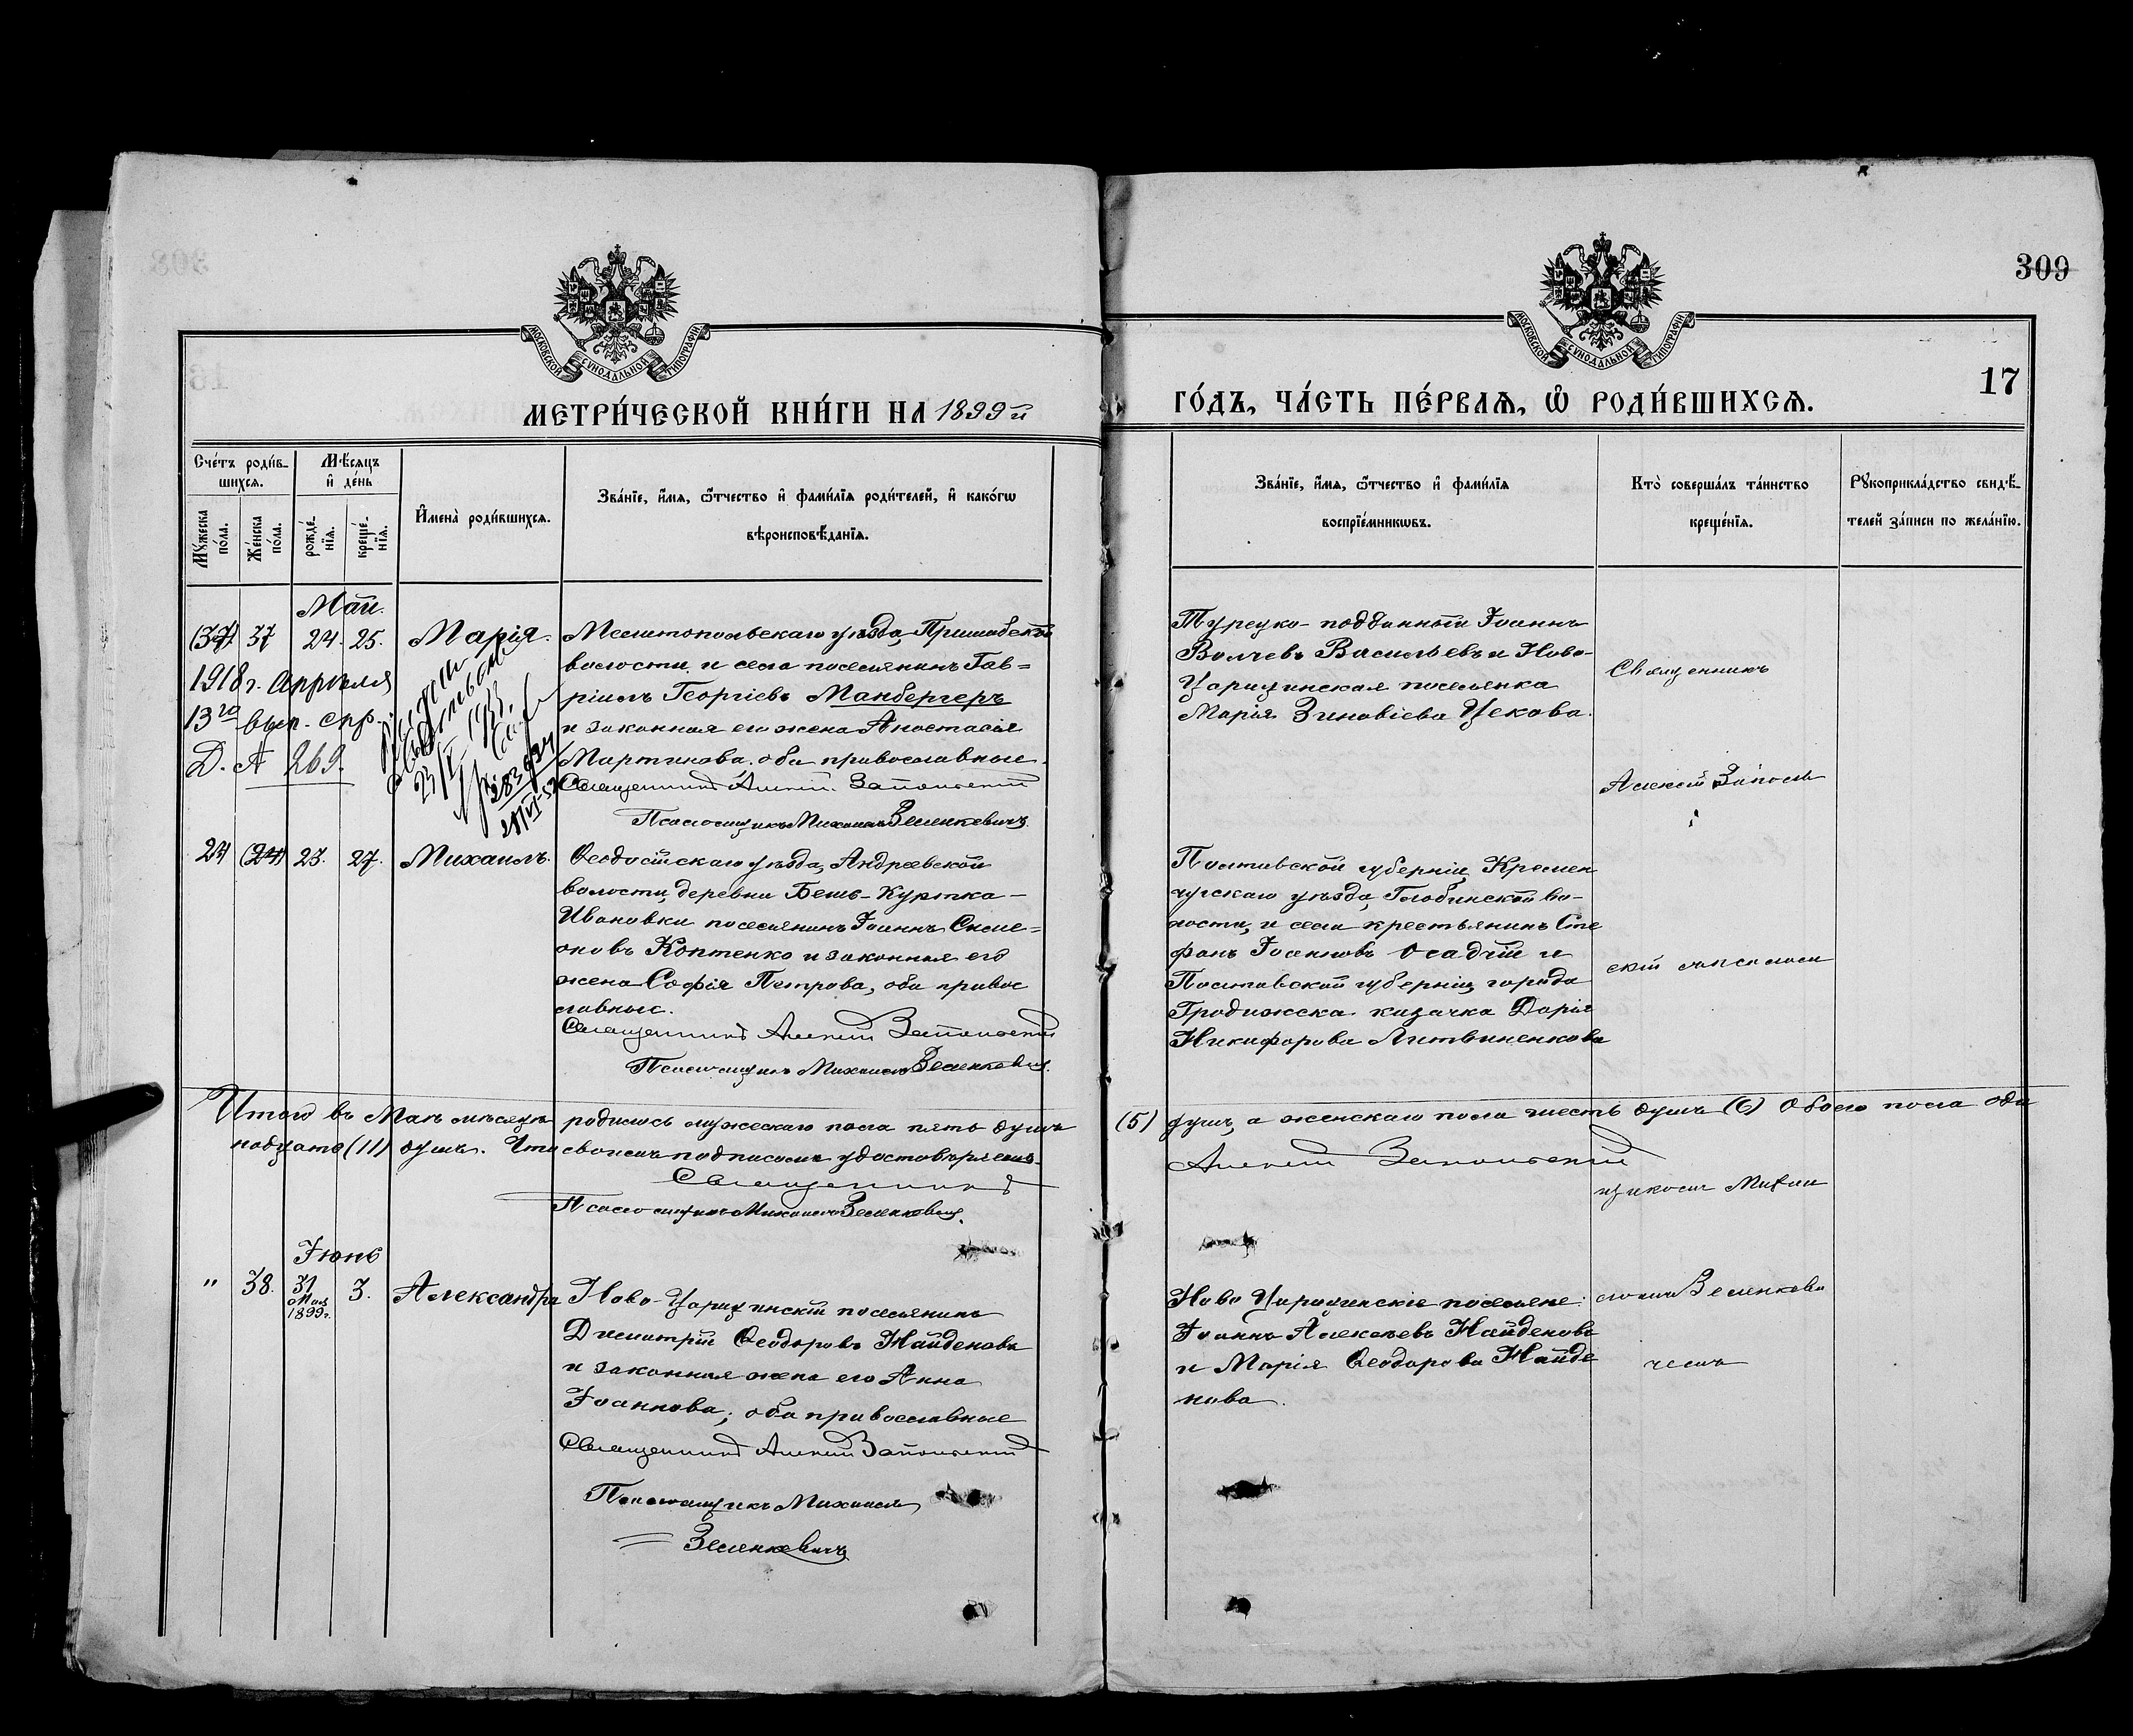 309
МОСКОВСКОЙ СѴНОДАЛЬНОЙ ТИПОГРАФІИ
МОСКОВСКОЙ СѴНОДАЛЬНОЙ ТИПОГРАФІИ
17
МЕТРИ́ЧЕСКОЙ КНИ́ГИ НА 1899й
ГО́ДЪ, ЧА́СТЬ ПЕ́РВАѦ, Ѡ҆ РОДИ́ВШИХСѦ.
Сче́тъ роди́в-
шихсѧ.
Мꙋ́жеска по́ла.
Же́нска по́ла.
Мѣ́сѧцъ
и҆ де́нь
рожде́-
нїѧ.
креще́-
нїѧ.
И҆мена̀ роди́вшихсѧ.
Зва́нїе, и҆́мѧ, ѻ҆́тчество и҆ фами́лїѧ роди́телей, и҆ како́гѡ
вѣроисповѣ́данїѧ.
Зва́нїе, и҆́мѧ, ѻ҆́тчество и҆ фами́лїѧ
воспрїе́мникѡвъ.
Кто̀ соверша́лъ та́инство
креще́нїѧ.
Рꙋкоприкла́дство свидѣ́-
телей за́писи по жела́нїю.
Май.
(37) 37 24. 25. Марія.
Мелитопольскаго уѣзда, Пришибской
волости и села поселянинъ Гав=
ріилъ Георгіевъ Манбергеръ
и законная его жена Анастасія
Мартинова. оба православные.
Священникъ Алексій Запольскій
Псаломщикъ Михаилъ Зеленкевичъ.
1918 г. Апрѣля
13го вып. спр.
Д. № 269.
Турецко-подданный Іоаннъ
Волчевъ Васильевъ и Ново-
Царицинская поселянка
Марія Зиновіева Цекова.
Священникъ
Алексій Заполь
24 (24) 23. 27. Михаилъ.
Ѳеодосійскаго уѣзда, Андреевской
волости, деревни Бешъ-Куртка-
Ивановки поселянинъ Іоаннъ Симе=
оновъ Коптенко и законная его
жена Софія Петрова, оба правос
лавные.
Священникъ Алексій Запольскій
Псаломщикъ Михаилъ Зеленкевичъ.
Полтавской губерніи, Кремен
чугскаго уѣзда, Глобинской во-
лости, и села крестьянинъ Сте
фанъ Іоанновъ Осадчій и
Полтавской губерніи, города
Градижска казачка Дарія
Никифорова Литвиненкова
скій съ псалом
Итого въ Маѣ мѣсяцѣ родилось мужескаго пола пять душъ
(5) душъ, а женскаго пола шесть душъ (6) Обоего пола оди
надцать (11) душъ. Что своимъ подписомъ удостовѣряемъ.
Священникъ
Алексій Запольскій
Псаломщикъ Михаилъ Зеленкевичъ.
щикомъ Михаи
Іюнь
" 38. 31 Мая 1899 г. 3. Александра
Ново-Царицинскій поселянинъ
Димитрій Ѳеодоровъ Найденовъ
и законная жена его Анна
Іоаннова; оба православные
Священникъ Алексій Запольскій
Псаломщикъ Михаилъ
Зеленкевичъ
Ново Царицинскіе поселяне:
Іоаннъ Алексѣевъ Найденовъ
и Марія Ѳеодорова Найде
нова.
ломъ Зеленкеви
чемъ